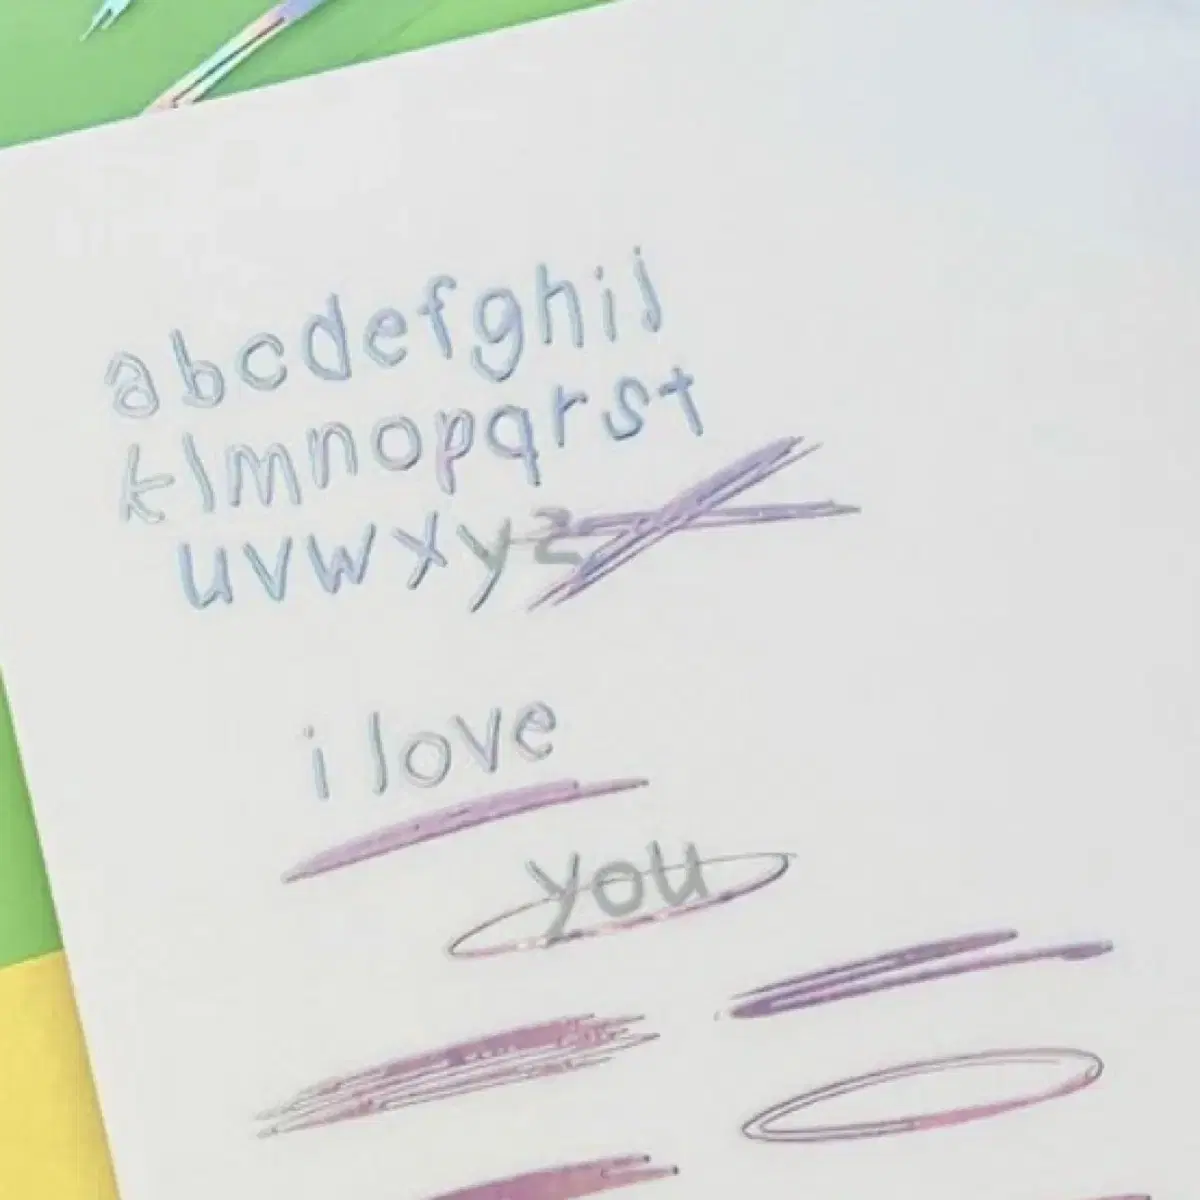 abcdefghij
klmnopqrst
uvwxyz
i love
you